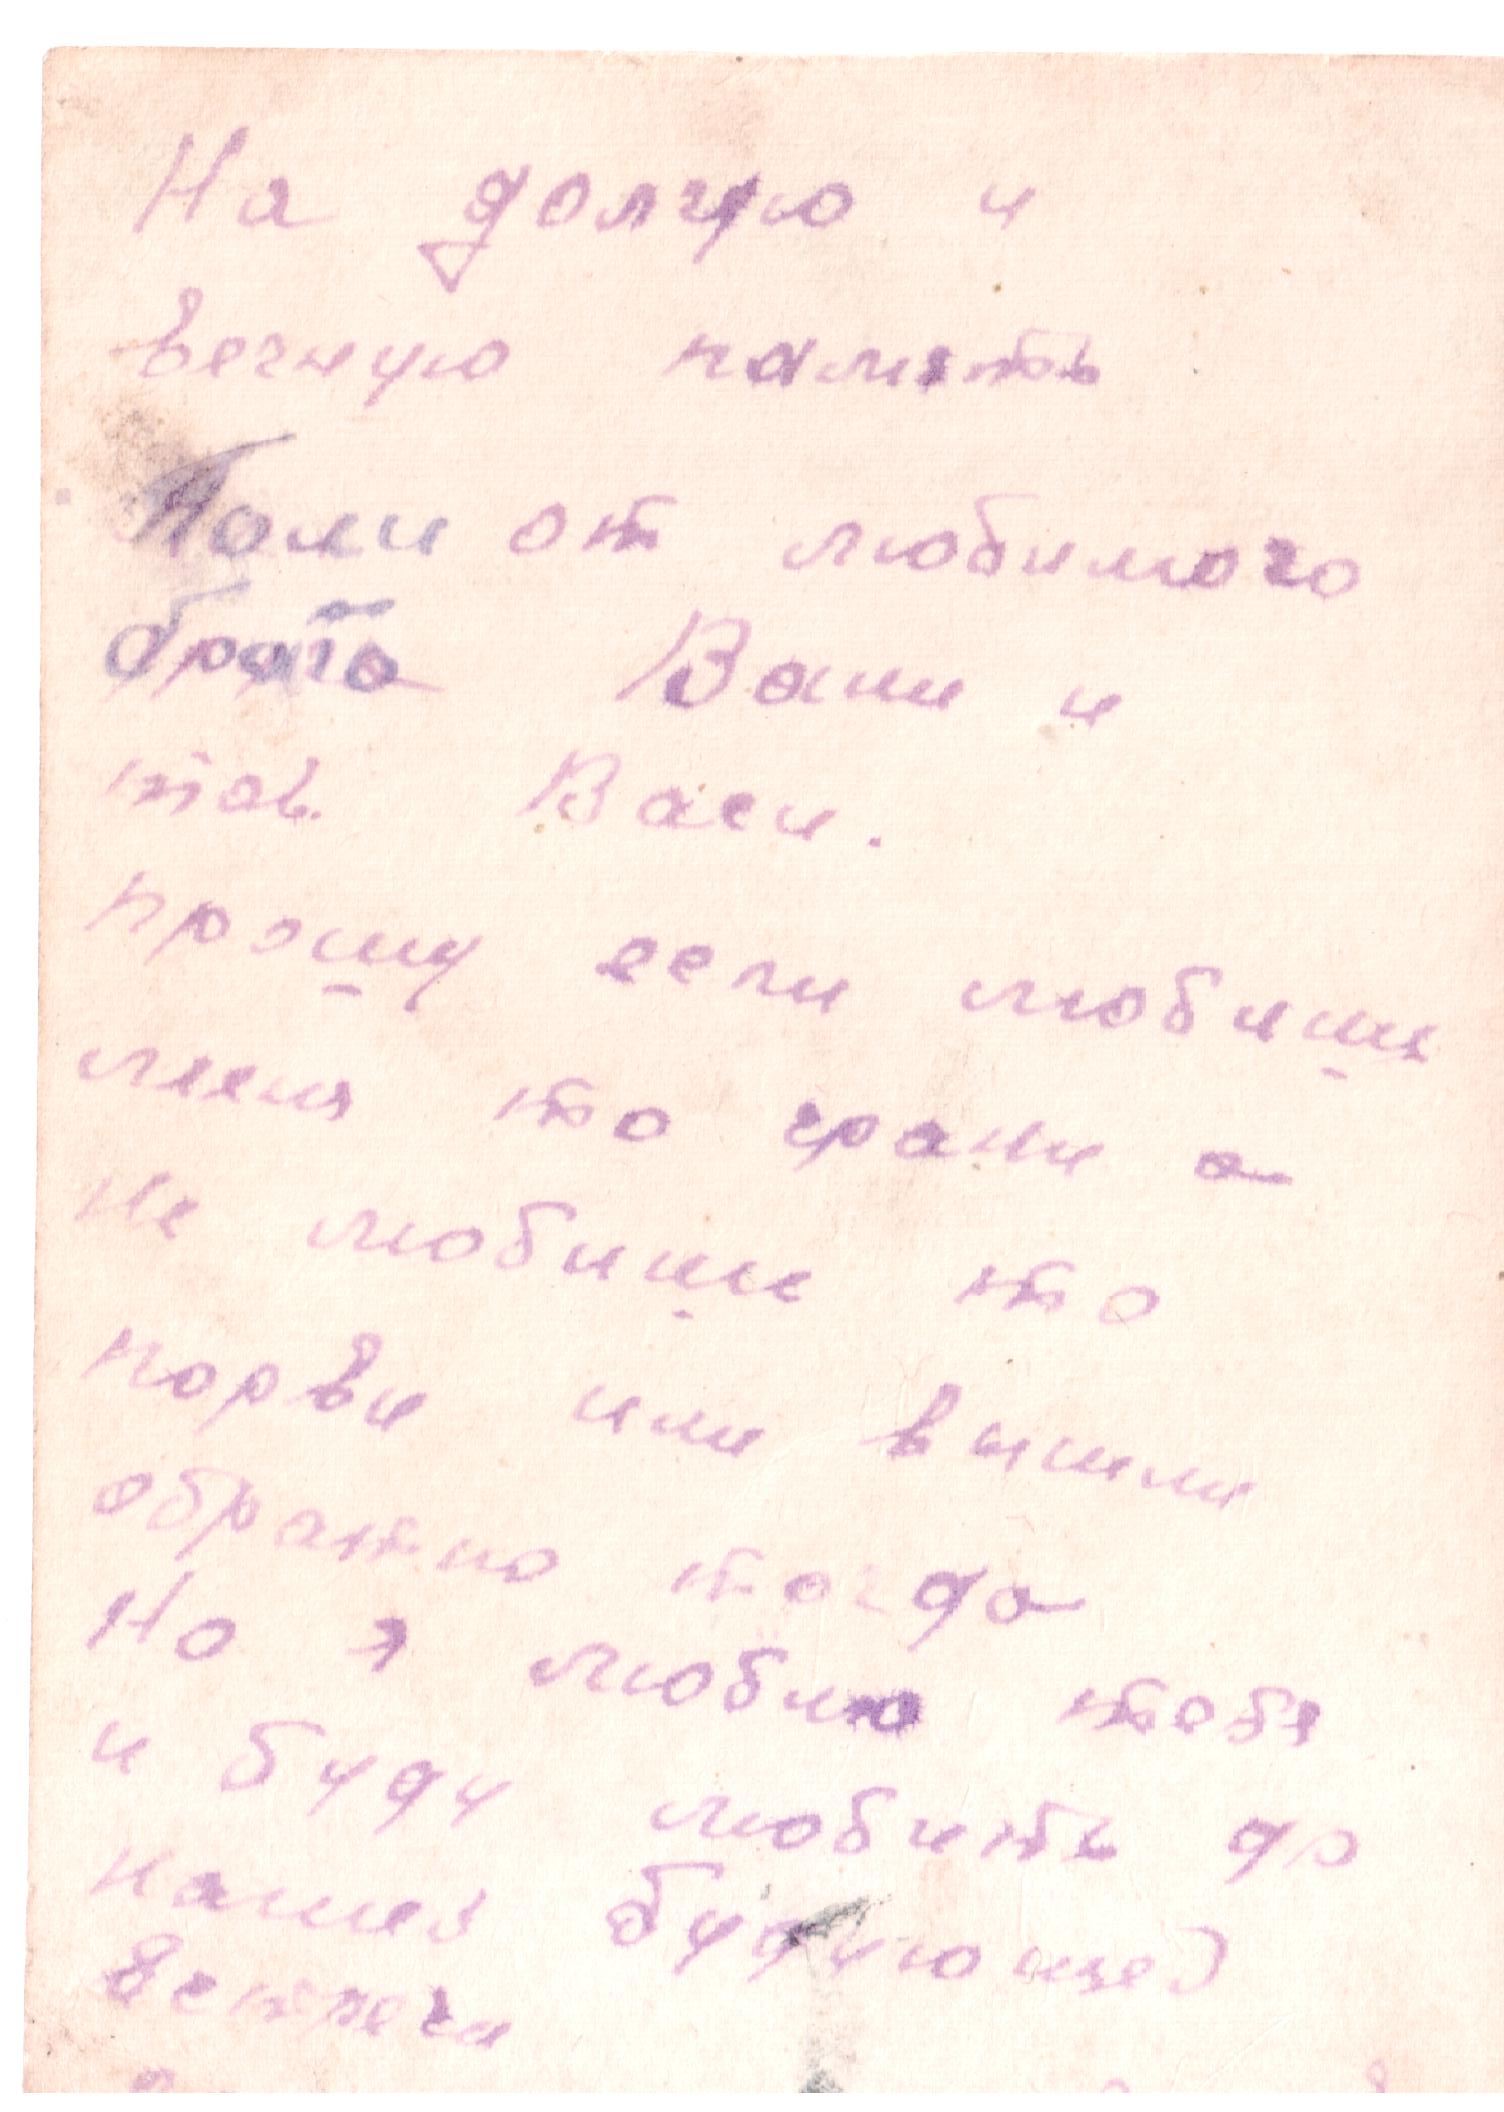 На долгую и
вечную память
Поли от любимого
брата Вани и
тов. Васи.
прошу если любиш
меня то храни а
не любиш то
порви или вышли
обратно тогда
Но я люблю тебя
и буду любить до
нашей будующей
встречи